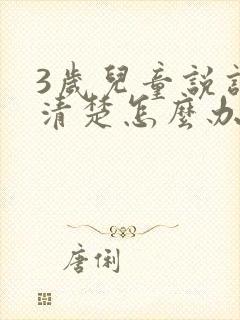 3歲兒童說
清楚怎麼办
唐俐